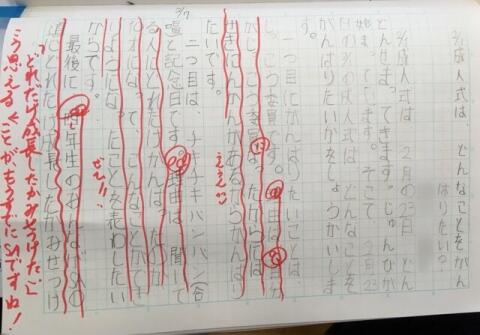 ½成人式は どんなことをがん
ばりたいの?
½成人式は 2月の23日 どん
どんせまってきます。じゅんびが
始まっています。そこで 2月23
日の½の成人式は どんなことを
がんばりたいかしょうかいしま
す。
一つ目にがんばりたいことは、
じっこう委員です。理由は
じっこう委員になったからには、
せきにんかんがあるからがんばり
たいです。
ええっ
二つ目は、チキチキバンバン(合
唱と記念日です。理由は、聞いて
る人にどれだけがんばったのか
なって、こんなことができ
るようになったことを表わしたい
からです。
最後に 年生のおんなじSの
道にどれだけ成長したかみせつけ
「どれだけ成長したかみせつけたい」
こう思えることがもうすでにSですね!